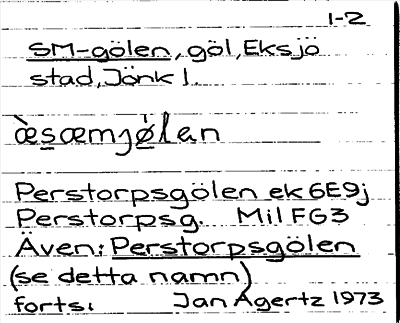 1-2
SM-gölen, göl, Eksjö
stad, Jönk l.
æ̀sæmjǿlan
Perstorpsgölen ek 6E9j
Perstorpsg. Mil FG3
Även: Perstorpsgölen
(se detta namn)
forts: Jan Agertz 1973